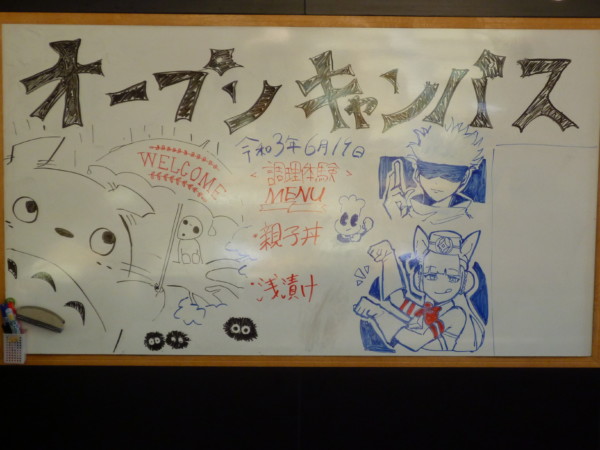 オープンキャンパス
令和3年6月19日
WELCOME
<調理体験>
MENU
・親子丼
・浅漬け